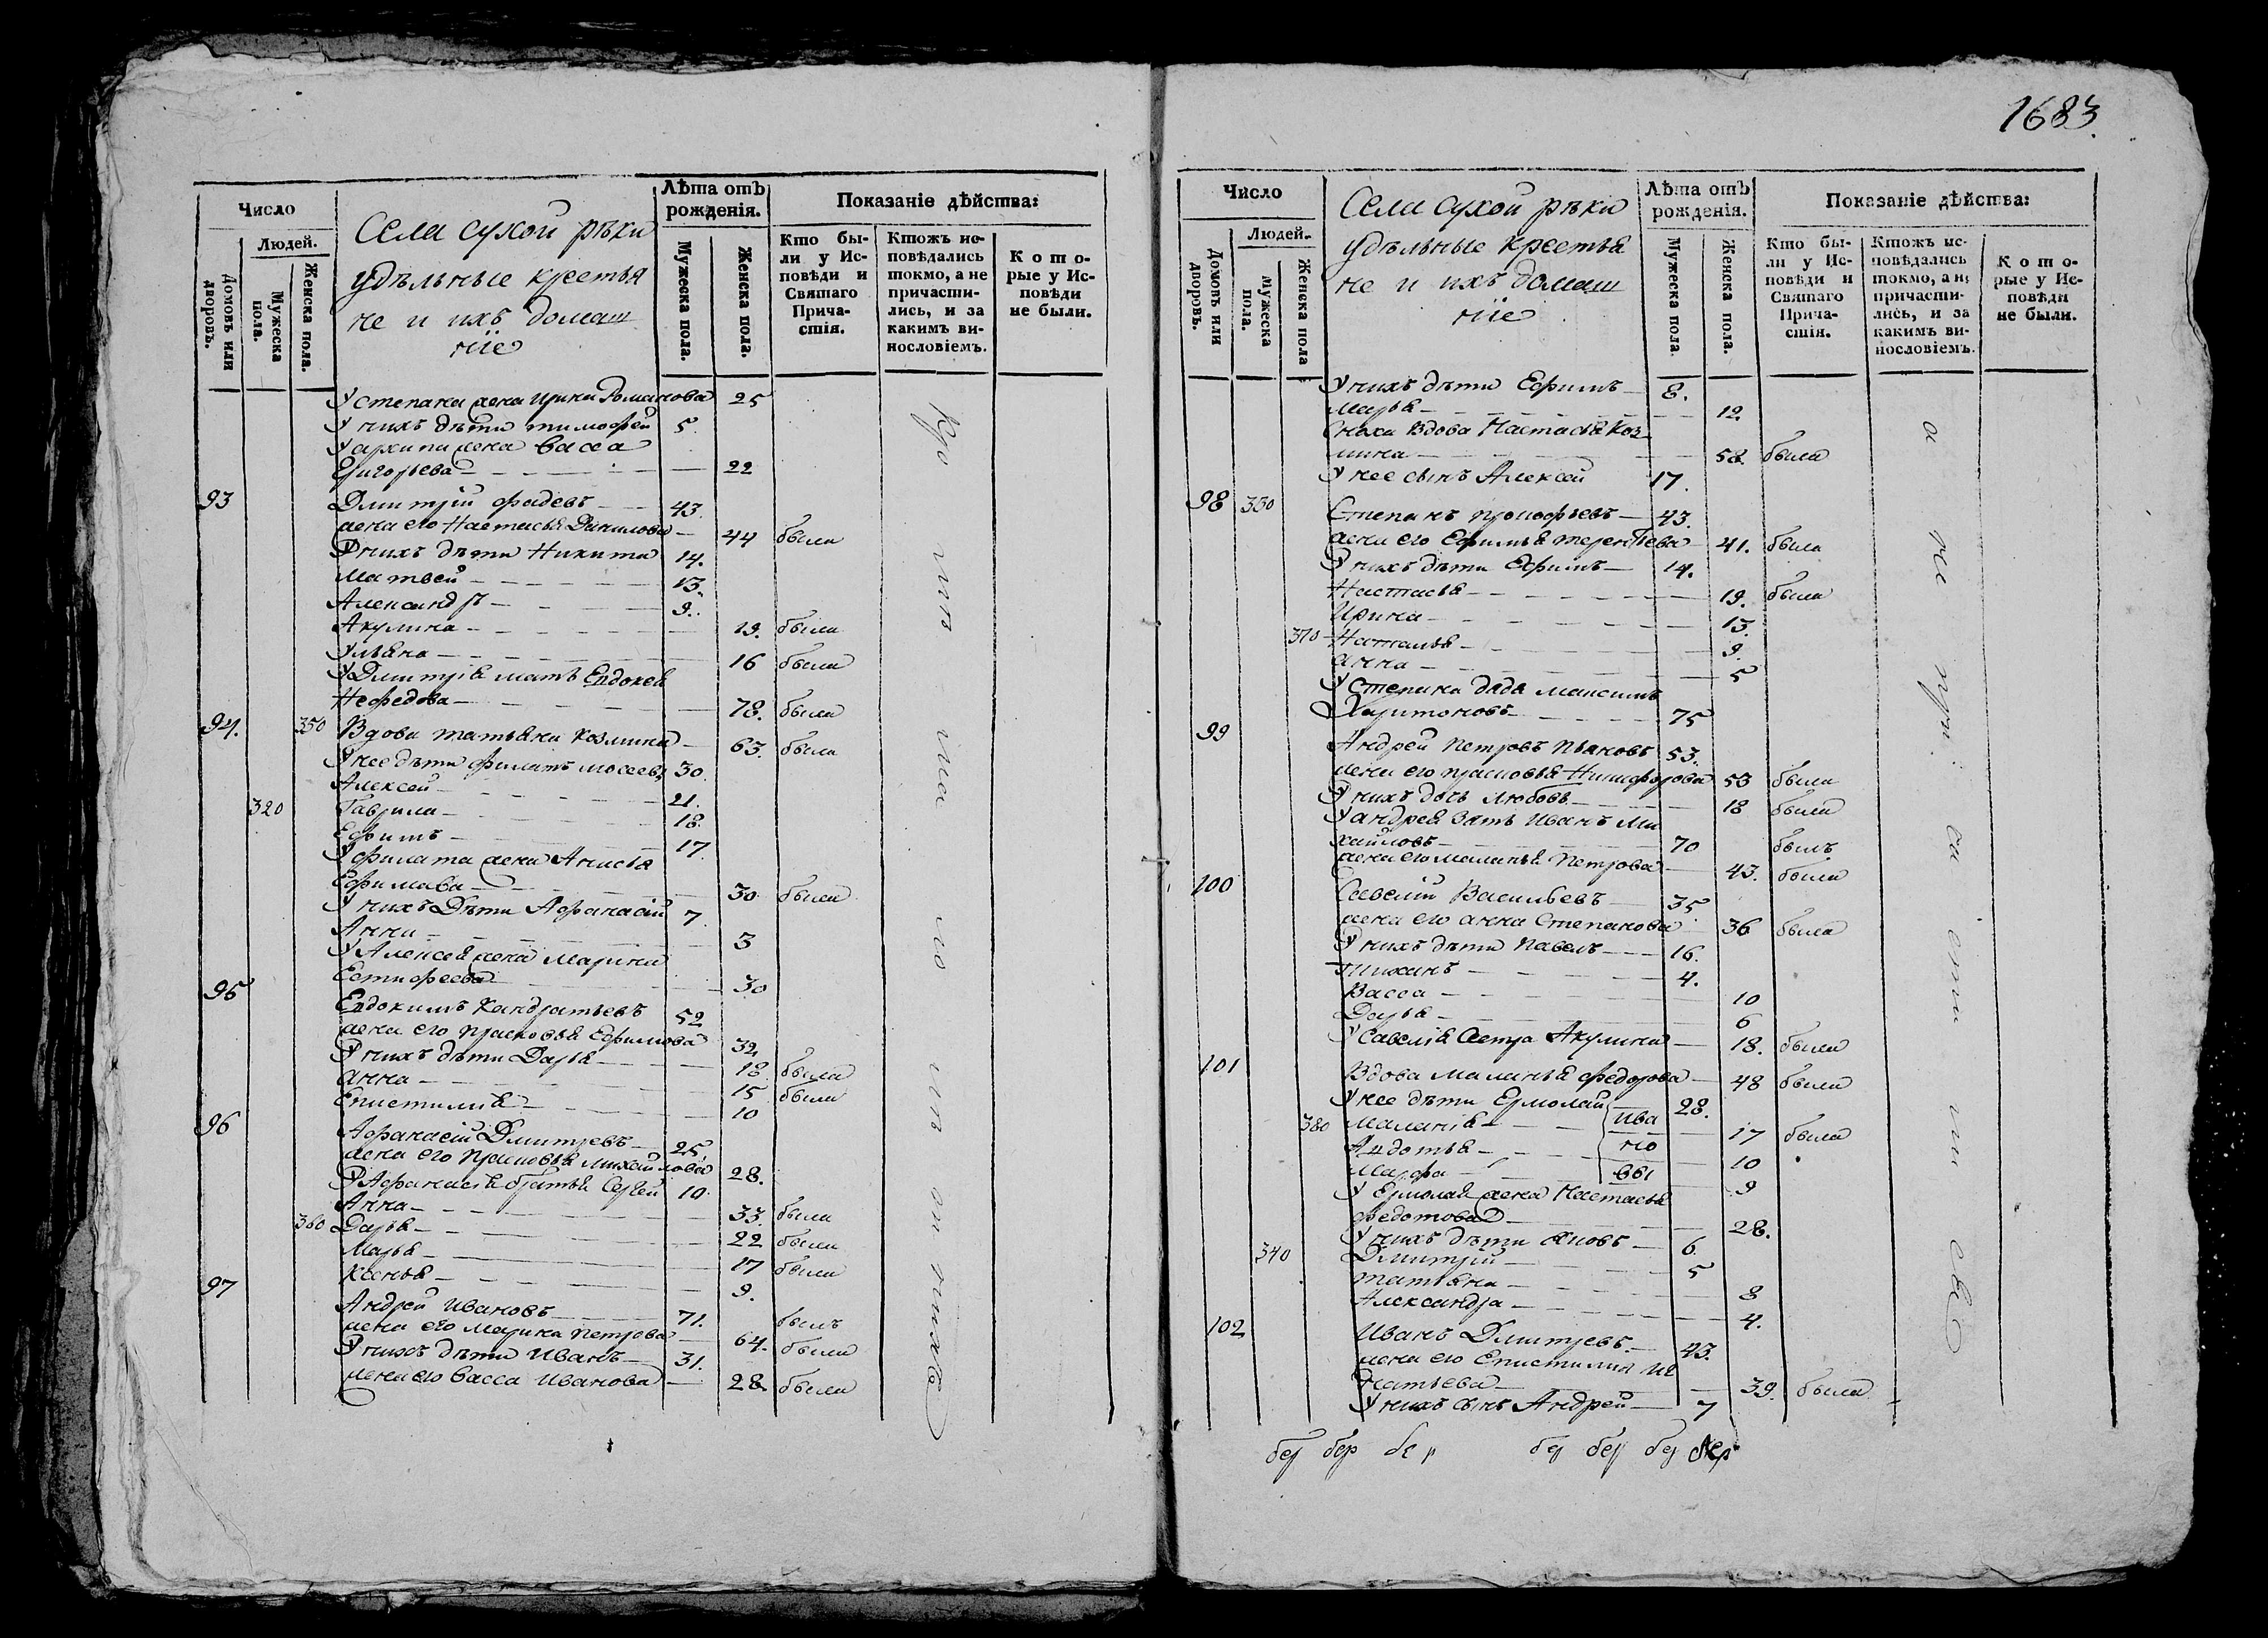 1683.
Число
Людей.
Домовъ или дворовъ.
Мужеска пола.
Женска пола.
Села сухой рѣки
удѣльные крестья
не и ихъ домаш
ніе
Лѣта отъ рожденія.
Мужеска пола.
Женска пола.
Показаніе дѣйства:
Кто бы-
ли у Ис-
повѣди и
Святаго
Прича-
стія.
Ктожъ ис-
повѣдались
токмо, а не
причасти-
лись, и за
какимъ ви-
нословіемъ.
Кото-
рые у Ис-
повѣди
не были.
У степана жена Ирина Романова 25
У нихъ дѣти тимофей 5
У архипа жена Васса
Григорьева 22
93 Дмитрій фадевъ 43.
жена его Настасья Данилова 44 была
У нихъ дѣти Никита 14.
Матвей 13.
Александръ 9.
Акулина 19. была
Ульяна 16 была
У Дмитрія мать Евдокея
Нефедова 78. была
94. 350 Вдова татьяна Козмина 63. была
У нее дѣти филатъ мосеевъ 30.
Алексей 21.
320 Гаврила 18.
Ефимъ 17.
У филата жена Анисья
Ефимава 30 была
У нихъ Дѣти Афанасій 7
Анна 3
У Алексея жена Марина
Естифеева 30
95 Евдокимъ Кандратьевъ 52
жена его прасковья Ефимова 32
У нихъ дѣти Дарья 18 была
анна 15 была
Епистимія 10
96 Афанасій Дмитревъ 25
жена его прасковья михайлова 28.
У Афанасія братья Сергей 10.
Анна 33. была
360 Дарья 22 была
Марья 17 была
Ксенья 9.
97 Андрей Ивановъ 71. былъ
жена его Марина Петрова 64. была
У нихъ дѣти Иванъ 31.
жена его Васса Иванова 28. была
Число
Людей.
Домовъ или дворовъ.
Мужеска пола.
Женска пола
Села сухой рѣки
удѣльные крестья
не и ихъ домаш
ніе
Лѣта отъ рожденія.
Мужеска пола.
Женска пола.
Показаніе дѣйства:
Кто бы-
ли у Ис-
повѣди и
Святаго
Прича-
стія.
Ктожъ ис-
повѣдались
токмо, а не
причасти-
лись, и за
какимъ ви-
нословіемъ.
Кото-
рые у Ис-
повѣди
не были.
У нихъ дѣти Ефимъ 8.
марья 12.
Сноха Вдова Настасья Коз
мина 58. была
У нее сынъ Алексей 17.
98 330 Степанъ прокофьевъ 43.
жена его Ефимья терентьева 41. была
У нихъ дѣти Ефимъ 14.
Настасья 19. была
Ирина 13.
370 Наталья 9.
анна 5
У степана дядя максимъ
Харитоновъ 75
99 Андрей Петровъ Пьяновъ 53.
жена его прасковья Никифорова 53 была
У нихъ дочь любовь 18 была
У андрея зять Иванъ Ми
хайловъ 70 былъ
жена его маланья Петрова 43. была
100 Савелій Васильевъ 35
жена его анна Степанова 36 была
У нихъ дѣти Павелъ 16.
тиханъ 4.
Васса 10
Дарья 6
У Савелія Сестра Акулина 18. была
101 Вдова маланья федорова 48 была
У нее дѣти Ермолай 28.
380 маланія Ива 17 была
Авдотья но 10
Марфа вы 9
У Ермолая жена Настасья
федотова 28.
У нихъ дѣти Яковъ 6
340 Дмитрій 5
татьяна 8
Александра 4.
102 Иванъ Дмитревъ 43.
жена его Епистимия Иг
натьева 39. была
У нихъ сынъ Андрей 7